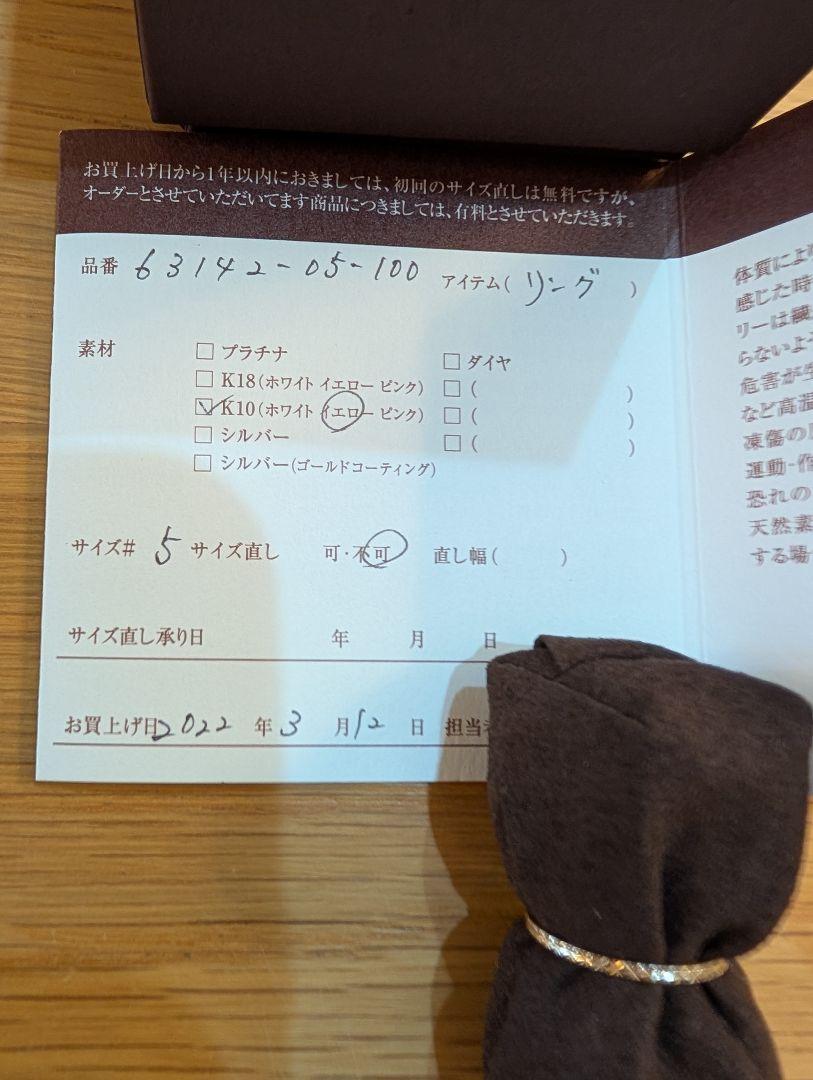 お買上げ日から1年以内におきましては、初回のサイズ直しは無料ですが、
オーダーとさせていただいてます商品につきましては、有料とさせていただきます。
品番 63142-05-100 アイテム( リング )
素材 □ プラチナ □ ダイヤ
□ K18(ホワイト イエロー ピンク) □ ( )
☑ K10(ホワイト イエロー ピンク) □ ( )
□ シルバー □ ( )
□ シルバー(ゴールドコーティング)
サイズ# 5 サイズ直し 可・不可 直し幅( )
サイズ直し承り日 年 月 日
お買上げ日 2022 年 3 月 12 日 担当
体質によ
感じた時
リーは繊
らないよ
危害が
など高温
凍傷の
運動・作
恐れの
天然素
する場